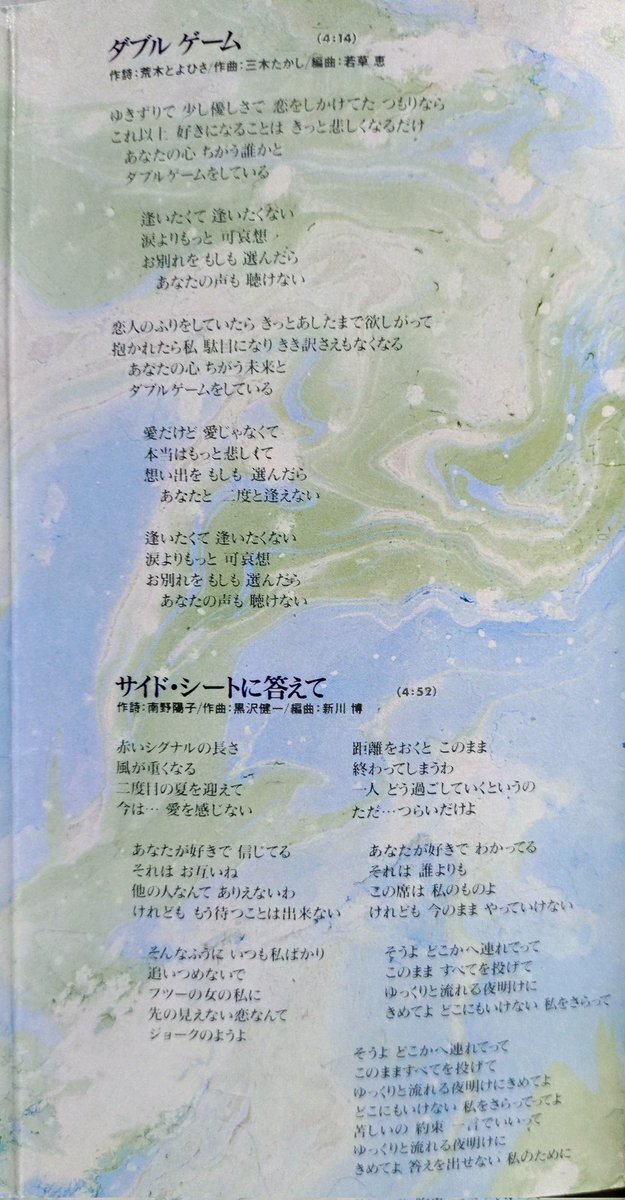 ダブル ゲーム (4:14)
作詩:荒木とよひさ/作曲:三木たかし/編曲:若草 恵
ゆきずりで 少し優しさで 恋をしかけてた つもりなら
これ以上 好きになることは きっと悲しくなるだけ
あなたの心 ちがう誰かと
ダブルゲームをしている
逢いたくて 逢いたくない
涙よりもっと 可哀想
お別れを もしも 選んだら
あなたの声も 聴けない
恋人のふりをしていたら きっとあしたまで欲しがって
抱かれたら私 駄目になり きき訳さえもなくなる
あなたの心 ちがう未来と
ダブルゲームをしている
愛だけど 愛じゃなくて
本当はもっと 悲しくて
想い出を もしも 選んだら
あなたと 二度と逢えない
逢いたくて 逢いたくない
涙よりもっと 可哀想
お別れを もしも 選んだら
あなたの声も 聴けない
サイド・シートに答えて (4:52)
作詩:南野陽子/作曲:黒沢健一/編曲:新川 博
赤いシグナルの長さ
風が重くなる
二度目の夏を迎えて
今は… 愛を感じない
あなたが好きで 信じてる
それは お互いね
他の人なんて ありえないわ
けれども もう待つことは出来ない
そんなふうに いつも私ばかり
追いつめないで
フツーの女の私に
先の見えない恋なんて
ジョークのようよ
距離をおくと このまま
終わってしまうわ
一人 どう過ごしていくというの
ただ…つらいだけよ
あなたが好きで わかってる
それは 誰よりも
この席は 私のものよ
けれども 今のまま やっていけない
そうよ どこかへ連れてって
このまま すべてを投げて
ゆっくりと流れる夜明けに
きめてよ どこにもいけない 私をさらって
そうよ どこかへ連れてって
このまますべてを投げて
ゆっくりと流れる夜明けにきめてよ
どこにもいけない 私をさらってってよ
苦しいの 約束 一言でいいって
ゆっくりと流れる夜明けに
きめてよ 答えを出せない 私のために